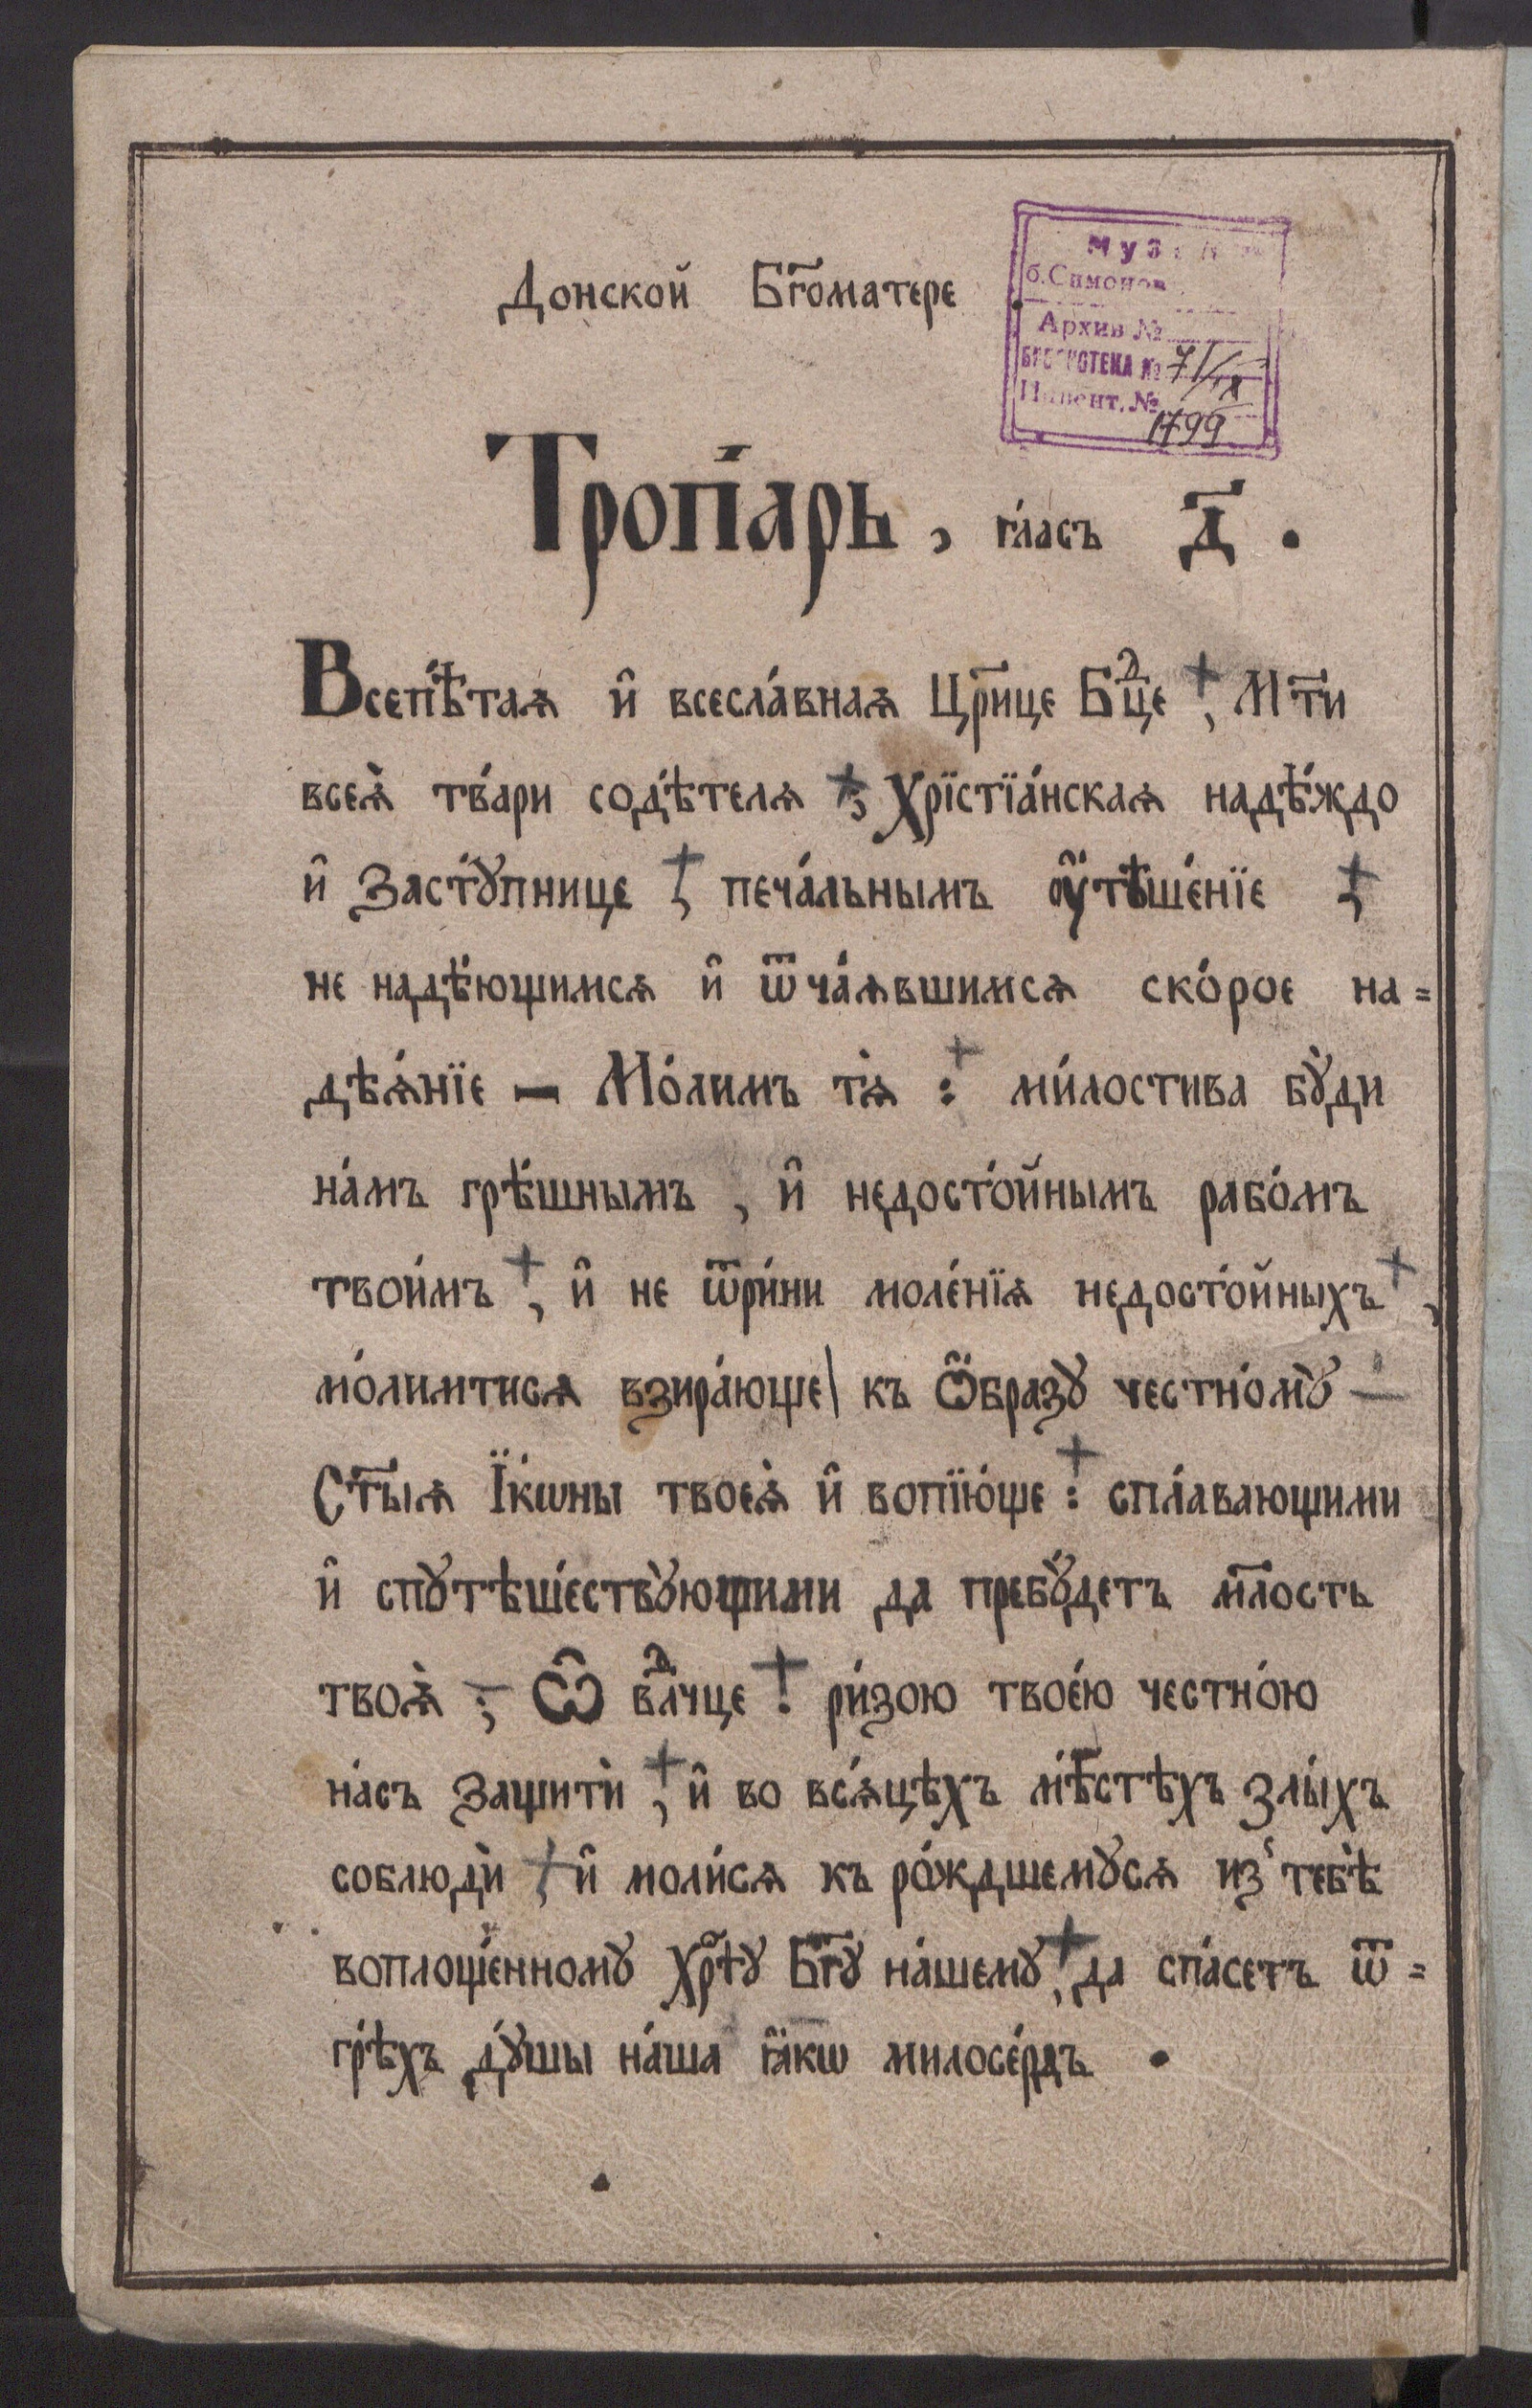 Донской Бг҃оматере
Музей
б.Симонов
Архив №
БИБЛИОТЕКА № 71/IX
Инвент. №
1799
Тропа́рь, гла́съ д҃.
Всепѣ́таѧ и҆ всесла́внаѧ Цр҃ице Бцⷣе, Мт҃и
всеѧ̀ тва́ри содѣ́телѧ, Хрїстїа́нскаѧ надѣ́ждо
и҆ Застꙋ́пнице, печа́льнымъ ᲂу҆тѣше́нїе,
не надѣ́ющимсѧ и҆ ѿча́ѧвшимсѧ ско́рое на=
дѣѧ́нїе – Мо́лимъ тѧ̀: ми́лостива бꙋ́ди
на́мъ грѣ́шнымъ, и҆ недосто́йнымъ рабо́мъ
твои́мъ, и҆ не ѿри́ни моле́нїѧ недосто́йныхъ,
мо́лимтисѧ взира́юще| къ Ѡ҆́бразꙋ честно́мꙋ –
Ст҃ыѧ І҆кѡ́ны твоеѧ̀ и҆ вопїю́ще: спла́вающими
и҆ спꙋтѣше́ствꙋющими да пребꙋ́детъ мл҃ость
твоѧ̀; Ѽ влⷣчце! ри́зою твое́ю честно́ю
на́съ защитѝ, и҆ во всѧ́цѣхъ мѣ́стѣхъ злы́хъ
соблюдѝ, и҆ моли́сѧ къ ро́ждшемꙋсѧ из̾ тебѣ̀
воплоще́нномꙋ Хрⷭ҇тꙋ̀ Бг҃ꙋ на́шемꙋ, да спасе́тъ ѿ=
грѣ́хъ дꙋ́шы на́ша ꙗ҆́кѡ милосе́рдъ.